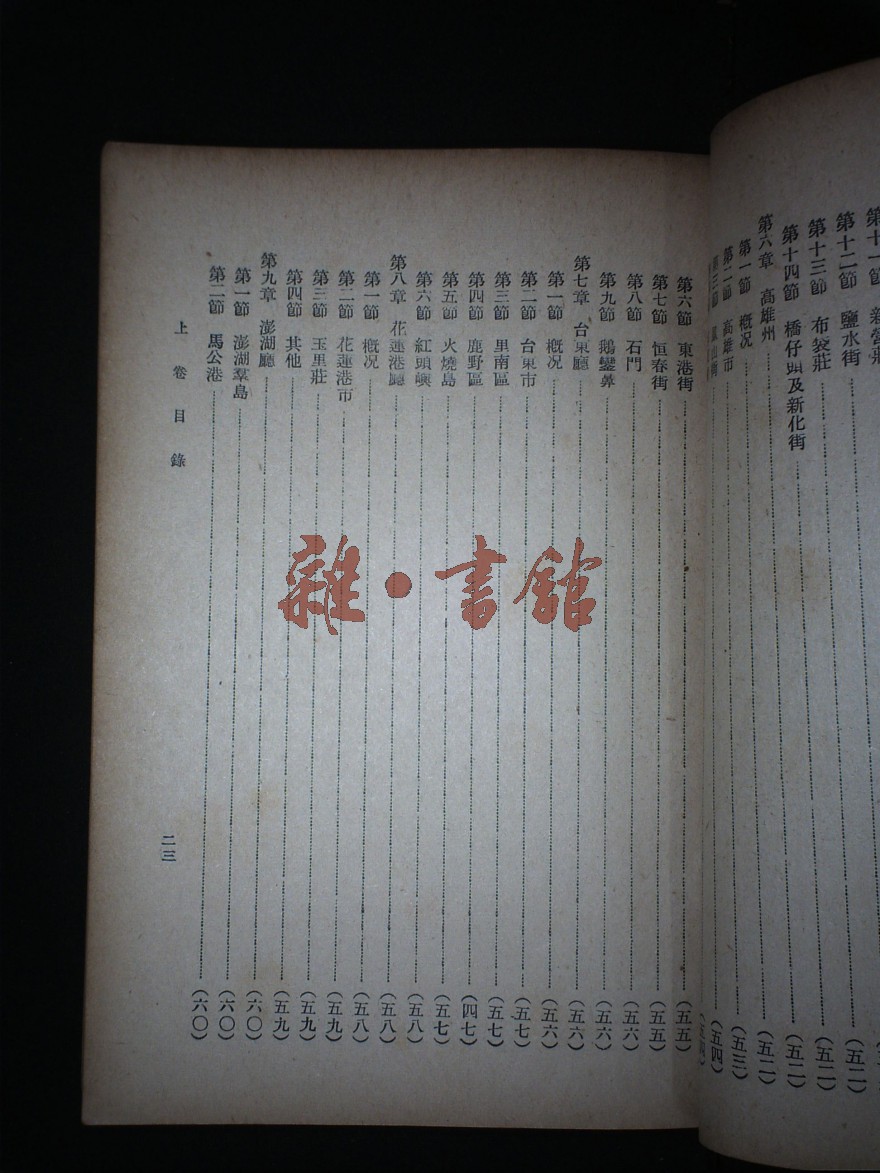 第十一節 新營莊
第十二節 鹽水街 (五二)
第十三節 布袋莊 (五二)
第十四節 橋仔頭及新化街 (五二)
第六章 高雄州 (五二)
第一節 概況 (五三)
第二節 高雄市 (五四)
第三節 鳳山街 (五四)
第六節 東港街 (五五)
第七節 恒春街 (五五)
第八節 石門 (五六)
第九節 鵝鑾鼻 (五六)
第七章 台東廳 (五六)
第一節 概況 (五六)
第二節 台東市 (五七)
第三節 里南區 (五七)
第四節 鹿野區 (四七)
第五節 火燒島 (五七)
第六節 紅頭嶼 (五八)
第八章 花蓮港廳 (五八)
第一節 概況 (五八)
第二節 花蓮港市 (五九)
第三節 玉里莊 (五九)
第四節 其他 (五九)
第九章 澎湖廳 (六〇)
第一節 澎湖羣島 (六〇)
第二節 馬公港 (六〇)
上卷目錄 二三
雜•書館